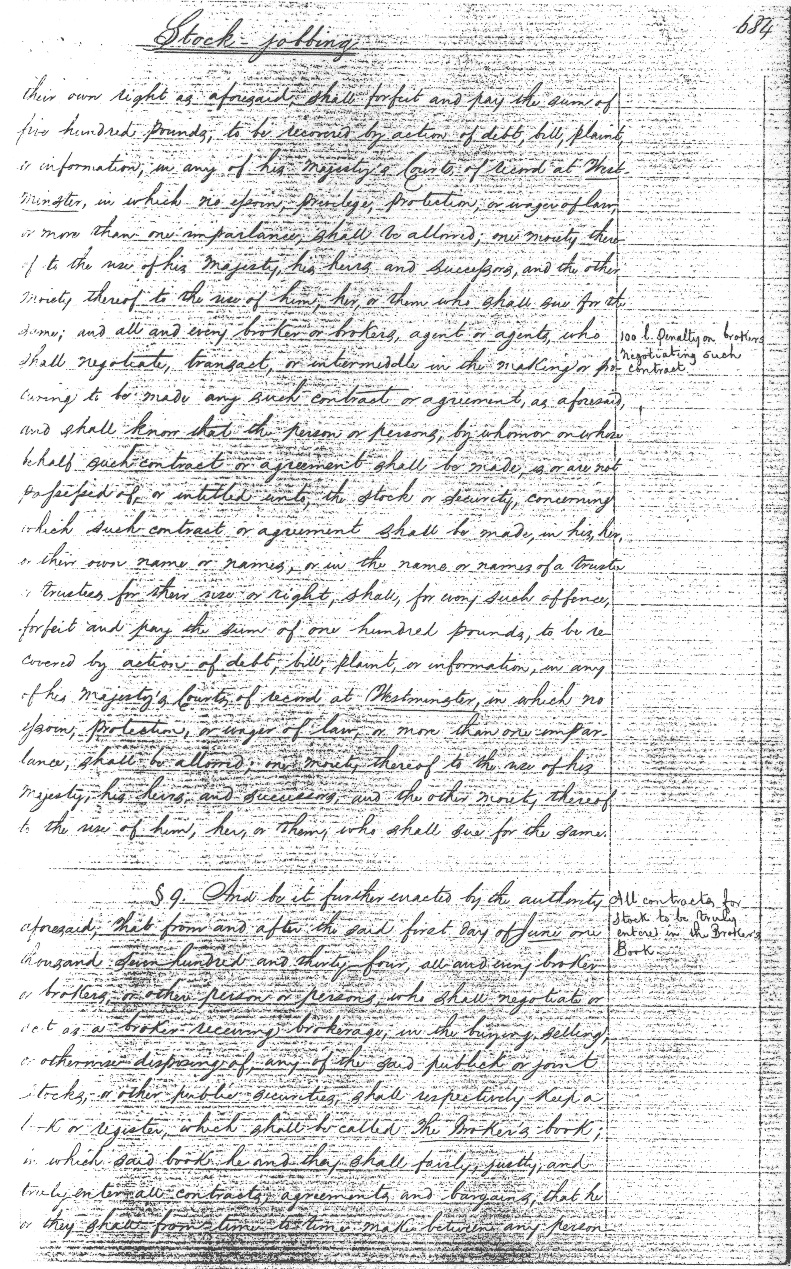 684
Stock-jobbing
their own right as aforesaid, shall forfeit and pay the sum of
five hundred pounds, to be recovered by action of debt, bill, plaint,
or information, in any of his Majesty's Courts of record at West-
minster, in which no essoin, privilege, protection, or wager of law,
or more than one imparlance, shall be allowed; one moiety there-
of to the use of his Majesty, his heirs and successors, and the other
moiety thereof to the use of him, her, or them who shall sue for the
same; and all and every broker or brokers, agent or agents, who
shall negotiate, transact, or intermeddle in the making or pro-
curing to be made any such contract or agreement, as aforesaid,
and shall know that the person or persons, by whom or on whose
behalf such contract or agreement shall be made, is or are not
possessed of, or intitled unto, the stock or security, concerning
which such contract or agreement shall be made, in his, her,
or their own name or names, or in the name or names of a trustee
or trustees for their use or right, shall, for every such offence,
forfeit and pay the sum of one hundred pounds, to be re-
covered by action of debt, bill, plaint, or information, in any
of his Majesty's Courts of record at Westminster, in which no
essoin, protection, or wager of law, or more than one impar-
lance, shall be allowed; one moiety thereof to the use of his
Majesty, his heirs, and successors, and the other moiety thereof
to the use of him, her, or them, who shall sue for the same.
100 l. Penalty on brokers
negotiating such
contract
§ 9. And be it further enacted by the authority
aforesaid, that from and after the said first day of June one
thousand seven hundred and thirty-four, all and every broker
or brokers, or other person or persons, who shall negotiate or
act as a broker receiving brokerage, in the buying, selling,
or otherwise disposing of, any of the said publick or joint
stocks, or other public securities, shall respectively keep a
book or register, which shall be called The Broker's book;
in which said book he and they shall fairly, justly, and
truly enter all contracts, agreements and bargains, that he
or they shall from time to time make between any person
All contracts for
Stock to be truly
entered in the Broker's
Book